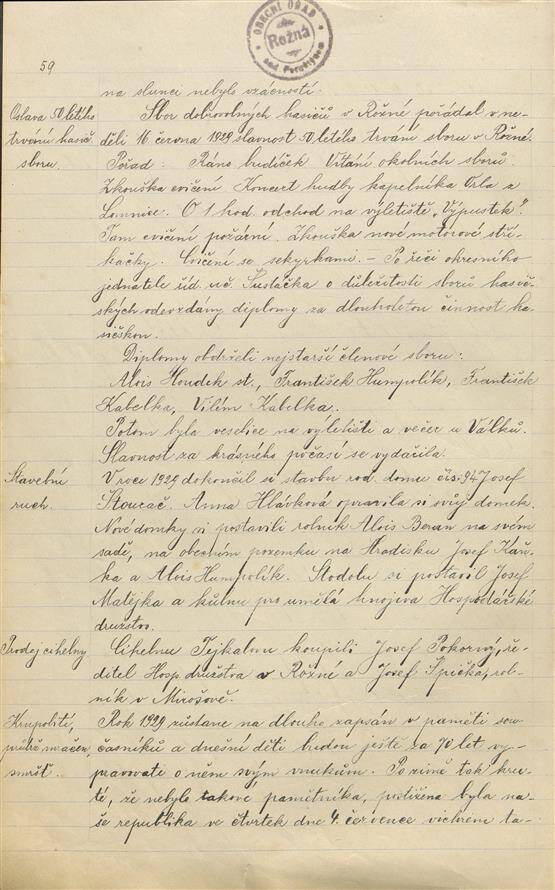 OBECNÍ ÚŘAD
Rožná
nad Pernštýnem
59
na slunci nebylo vzácností.
Oslava 50 letého
trvání hasič.
sboru.
Sbor dobrovolných hasičů v Rožné pořádal v ne-
děli 16. června 1929 slavnost 50 letého trvání sboru v Rožné.
Pořad: Ráno budíček. Vítání okolních sborů.
Zkouška cvičení. Koncert hudby kapelníka Orla z
Lomnice. O 1 hod. odchod na výletiště „Výpustek".
Tam cvičení požární. Zkouška nové motorové stří-
kačky. Cvičení se sekyrkami. – Po řeči okresního
jednatele říd. uč. Šusláčka o důležitosti sborů hasič-
ských odevzdány diplomy za dlouholetou činnost ha-
sičskou.
Diplomy obdrželi nejstarší členové sboru:
Alois Houdek st., František Humpolík, František
Kabelka, Vilém Kabelka.
Potom byla veselice na výletišti a večer u Válků.
Slavnost za krásného počasí se vydařila.
Stavební
ruch.
V roce 1929 dokončil si stavbu rod. domu čís. 94 Josef
Anna Hlávková opravila si svůj domek.
Nové domky si postavili rolník Alois Beran na svém
sadě, na obecním pozemku na Hradisku Josef Káň-
ka a Alois Humpolík. Stodolu si postavil Josef
Matějka a kůlnu pro umělá hnojiva Hospodářské
družstvo.
Prodej cihelny
Cihelnu Tejkalovu koupili Josef Pokorný, ře-
ditel Hosp. družstva v Rožné a Josef Špička, rol-
ník v Mirošově.
Krupobití,
průtrž mračen,
smršť.
Rok 1929 zůstane na dlouho zapsán v paměti sou-
časníků a dnešní děti budou ještě za 70 let vy-
pravovati o něm svým vnukům. Po zimě tak kru-
té, že nebylo takové pamětníka, postižena byla na-
še republika ve čtvrtek dne 4. července vichrem ta-